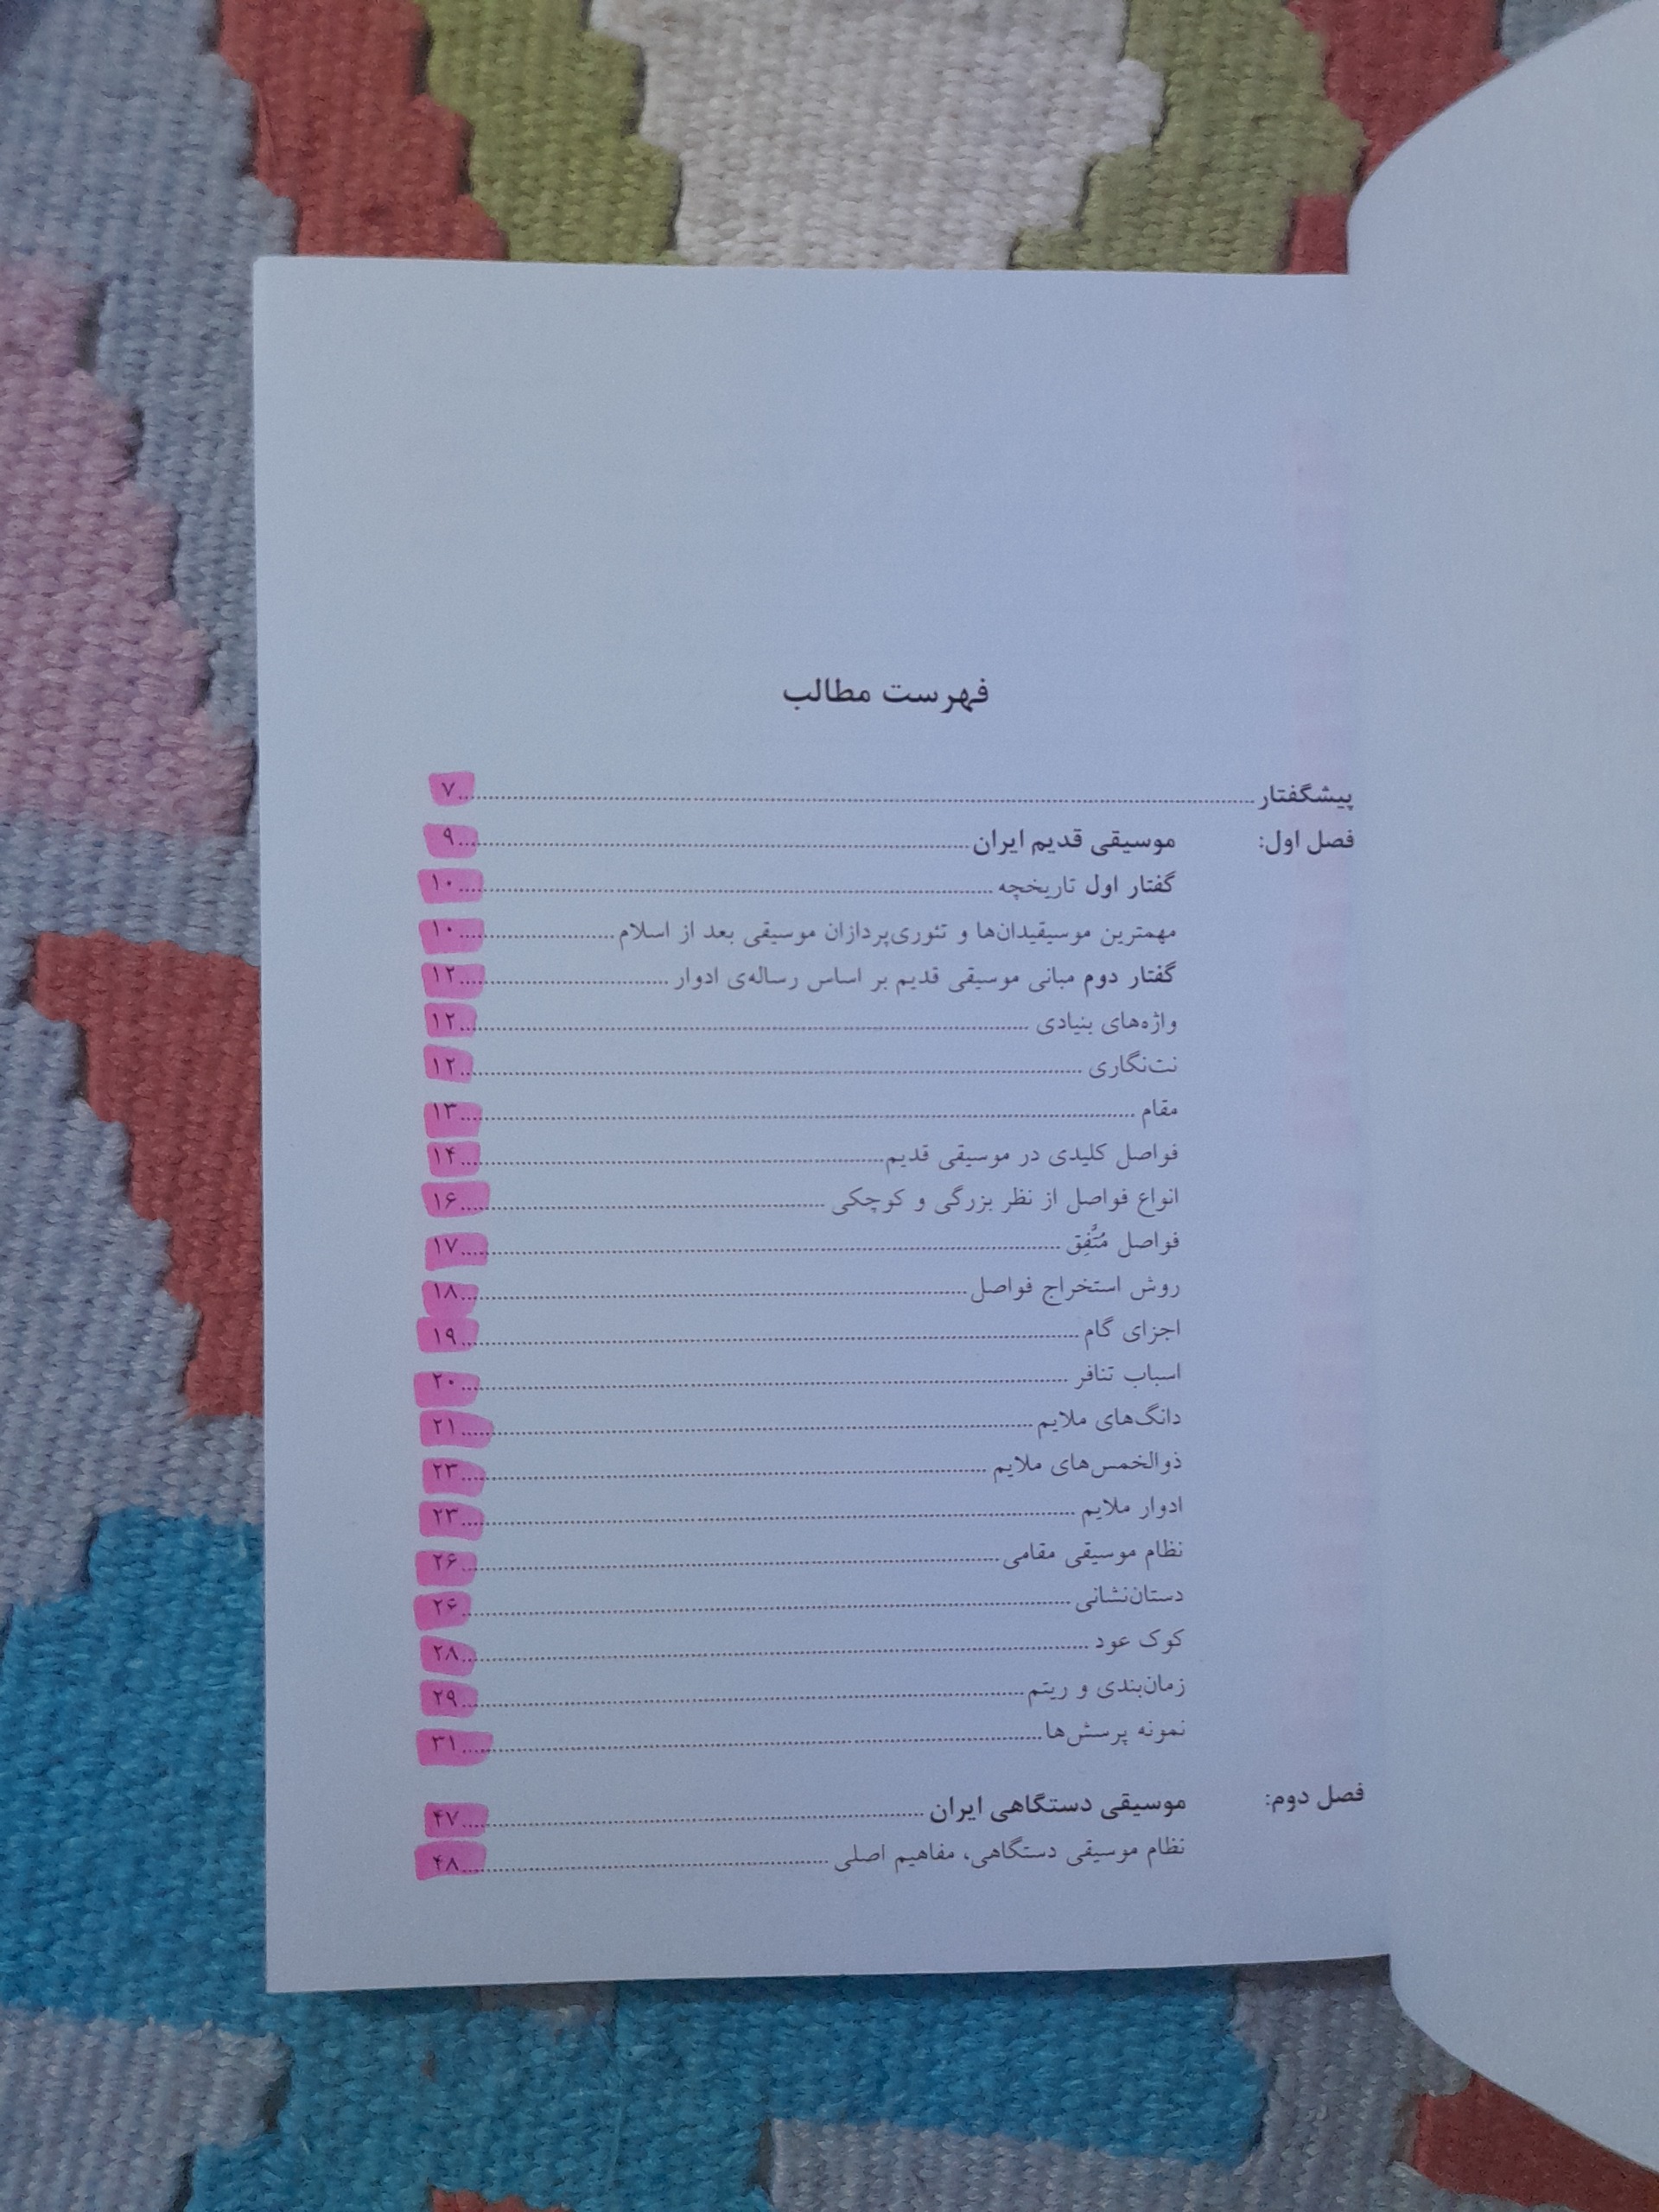 فهرست مطالب
پیشگفتار ........ ۷
فصل اول: موسیقی قدیم ایران ........ ۹
گفتار اول تاریخچه ........ ۱۰
مهمترین موسیقیدان‌ها و تئوری‌پردازان موسیقی بعد از اسلام ........ ۱۰
گفتار دوم مبانی موسیقی قدیم بر اساس رساله‌ی ادوار ........ ۱۲
واژه‌های بنیادی ........ ۱۲
نت‌نگاری ........ ۱۲
مقام ........ ۱۳
فواصل کلیدی در موسیقی قدیم ........ ۱۴
انواع فواصل از نظر بزرگی و کوچکی ........ ۱۶
فواصل مُتَّفِق ........ ۱۷
روش استخراج فواصل ........ ۱۸
اجزای گام ........ ۱۹
اسباب تنافر ........ ۲۰
دانگ‌های ملایم ........ ۲۱
ذوالخمس‌های ملایم ........ ۲۳
ادوار ملایم ........ ۲۳
نظام موسیقی مقامی ........ ۲۶
دستان‌نشانی ........ ۲۶
کوک عود ........ ۲۸
زمان‌بندی و ریتم ........ ۲۹
نمونه پرسش‌ها ........ ۳۱
فصل دوم: موسیقی دستگاهی ایران ........ ۴۷
نظام موسیقی دستگاهی، مفاهیم اصلی ........ ۴۸